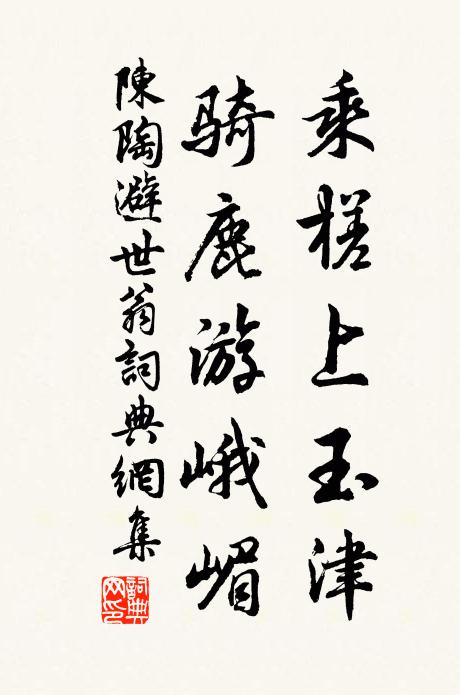 乘槎上玉津
騎鹿游峨嵋
陳陶避世翁詞典網集
詞典网印